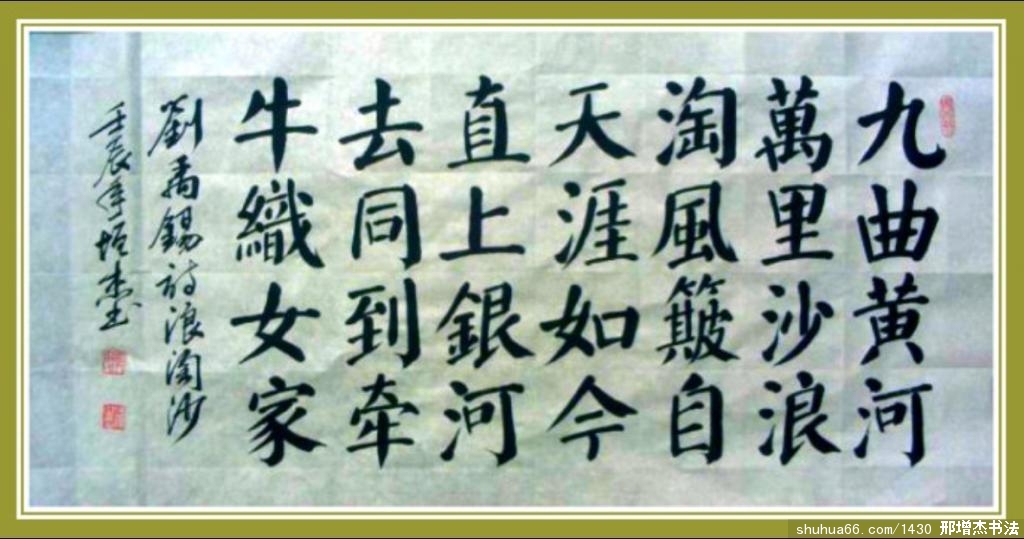 九曲黄河
萬里沙浪
淘風簸自
天涯如今
直上銀河
去同到牵
牛織女家
劉禹錫詩浪淘沙
壬辰年增杰书
shuhua66.com/1430 邢增杰书法